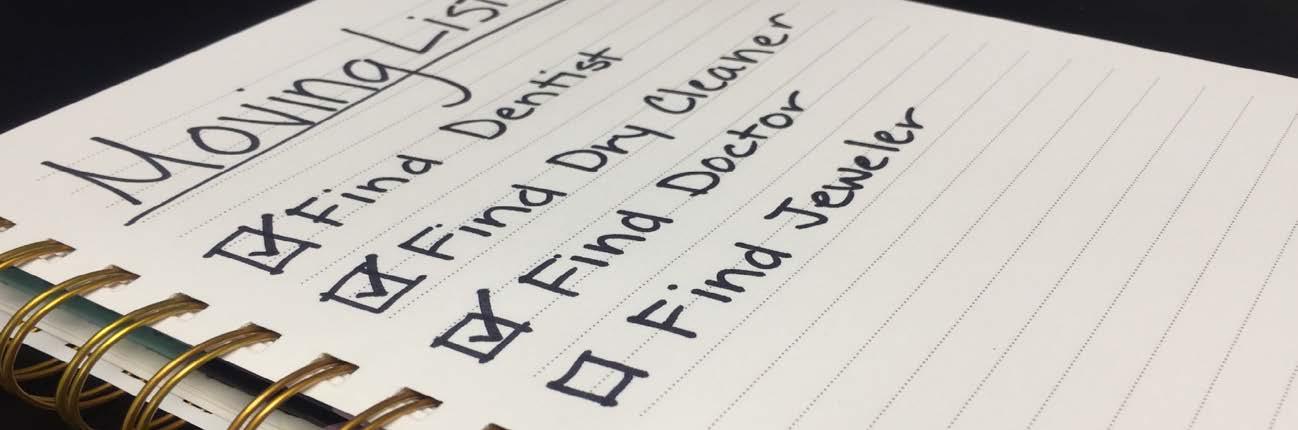 Moving List
Find Dentist
Find Dry Cleaner
Find Doctor
Find Jeweler